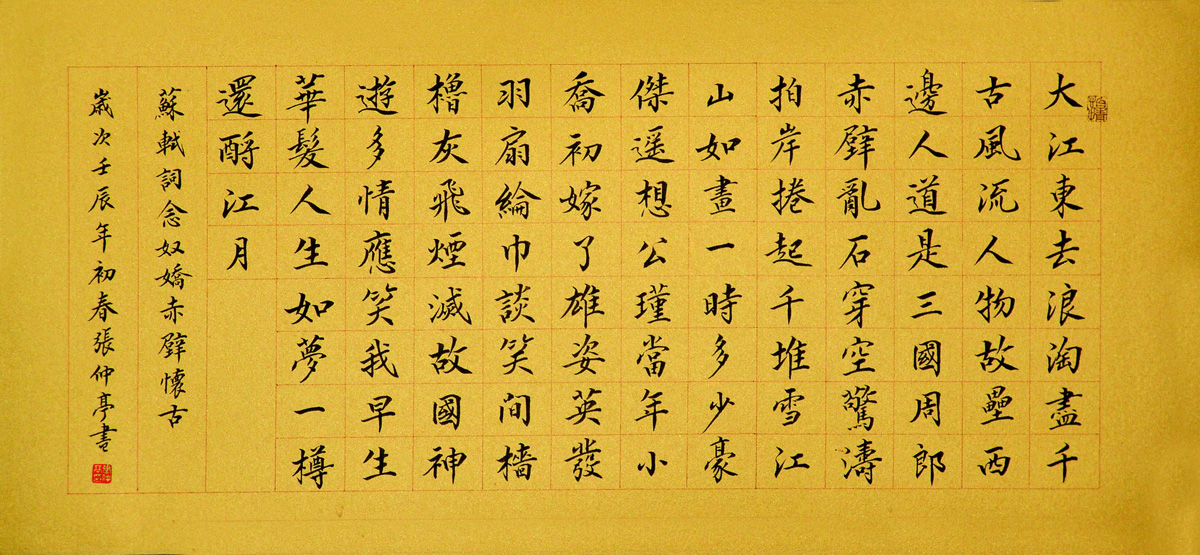 大江東去浪淘盡千
古風流人物故壘西
邊人道是三國周郎
赤壁亂石穿空驚濤
拍岸捲起千堆雪江
山如畫一時多少豪
傑遥想公瑾當年小
喬初嫁了雄姿英發
羽扇綸巾談笑间檣
櫓灰飛煙滅故國神
遊多情應笑我早生
華髮人生如夢一樽
還酹江月
蘇軾詞念奴嬌赤壁懷古
歲次壬辰年初春張仲亭書